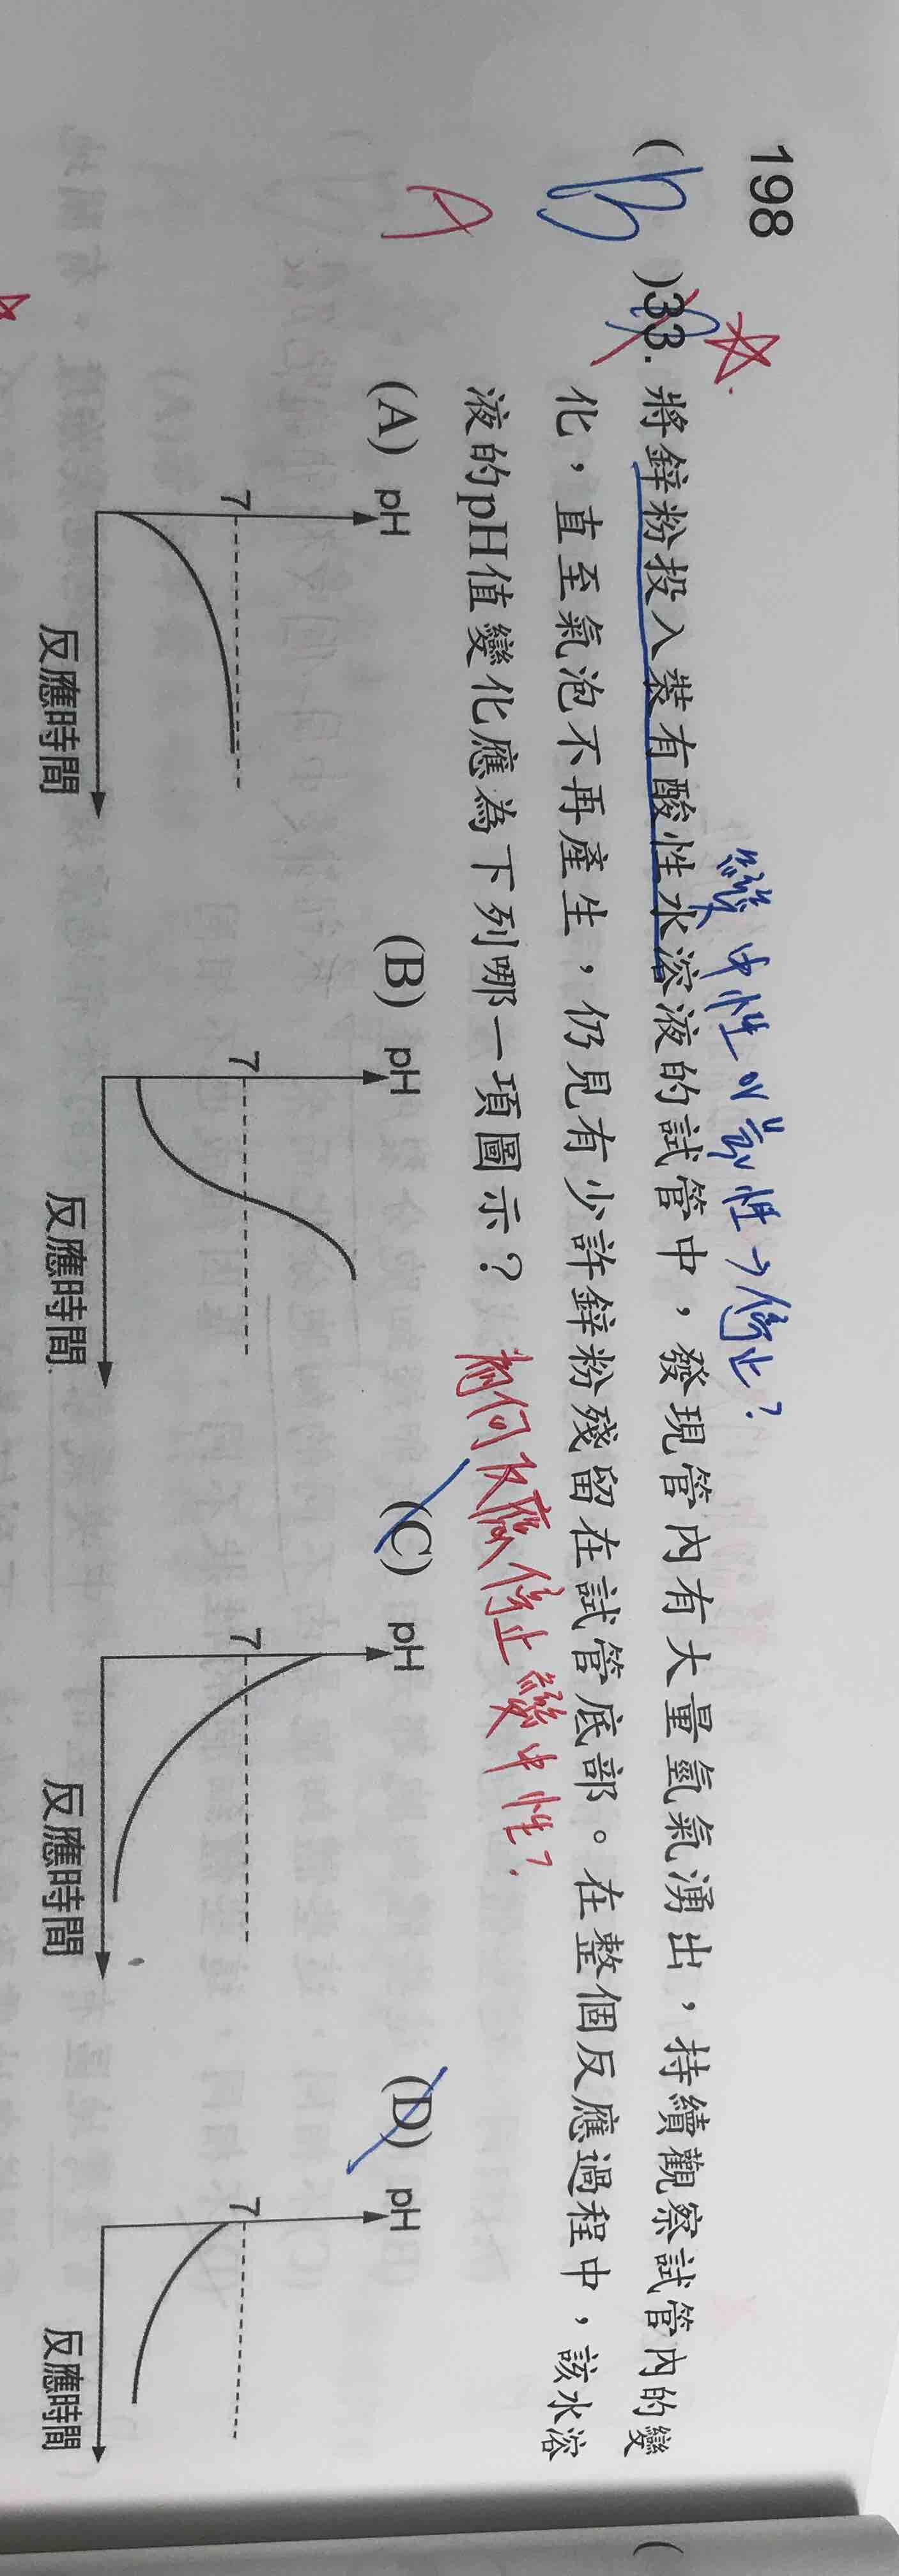 198
變中性or鹼性→停止?
( B )33. 將鋅粉投入裝有酸性水溶液的試管中，發現管內有大量氫氣湧出，持續觀察試管內的變
化，直至氣泡不再產生，仍見有少許鋅粉殘留在試管底部。在整個反應過程中，該水溶
液的pH值變化應為下列哪一項圖示？
為何反應停止變中性?
A
(A) pH
7
反應時間
(B) pH
7
反應時間
(C) pH
7
反應時間
(D) pH
7
反應時間
(